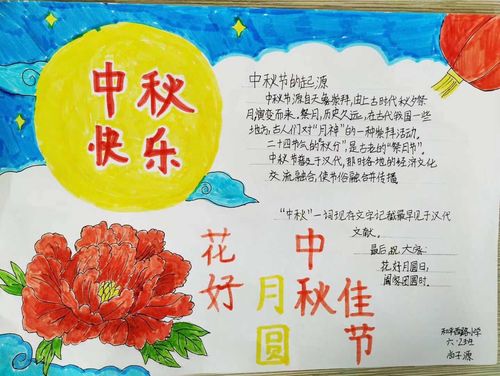 中秋
快乐
中秋节的起源
中秋节源自天象崇拜,由上古时代秋夕祭
月演变而来。祭月,历史久远,在古代我国一些
地方古人们对“月神”的一种崇拜活动。
二十四节气的“秋分”,是古老的“祭月节”。
中秋节普及于汉代,那时各地的经济文化
交流融合,使节俗融合并传播
“中秋”一词现存文字记载最早见于汉代
文献。
最后祝大家:
花好月圆日,
阖家团圆时。
花好
月圆
中秋
佳节
六·23班